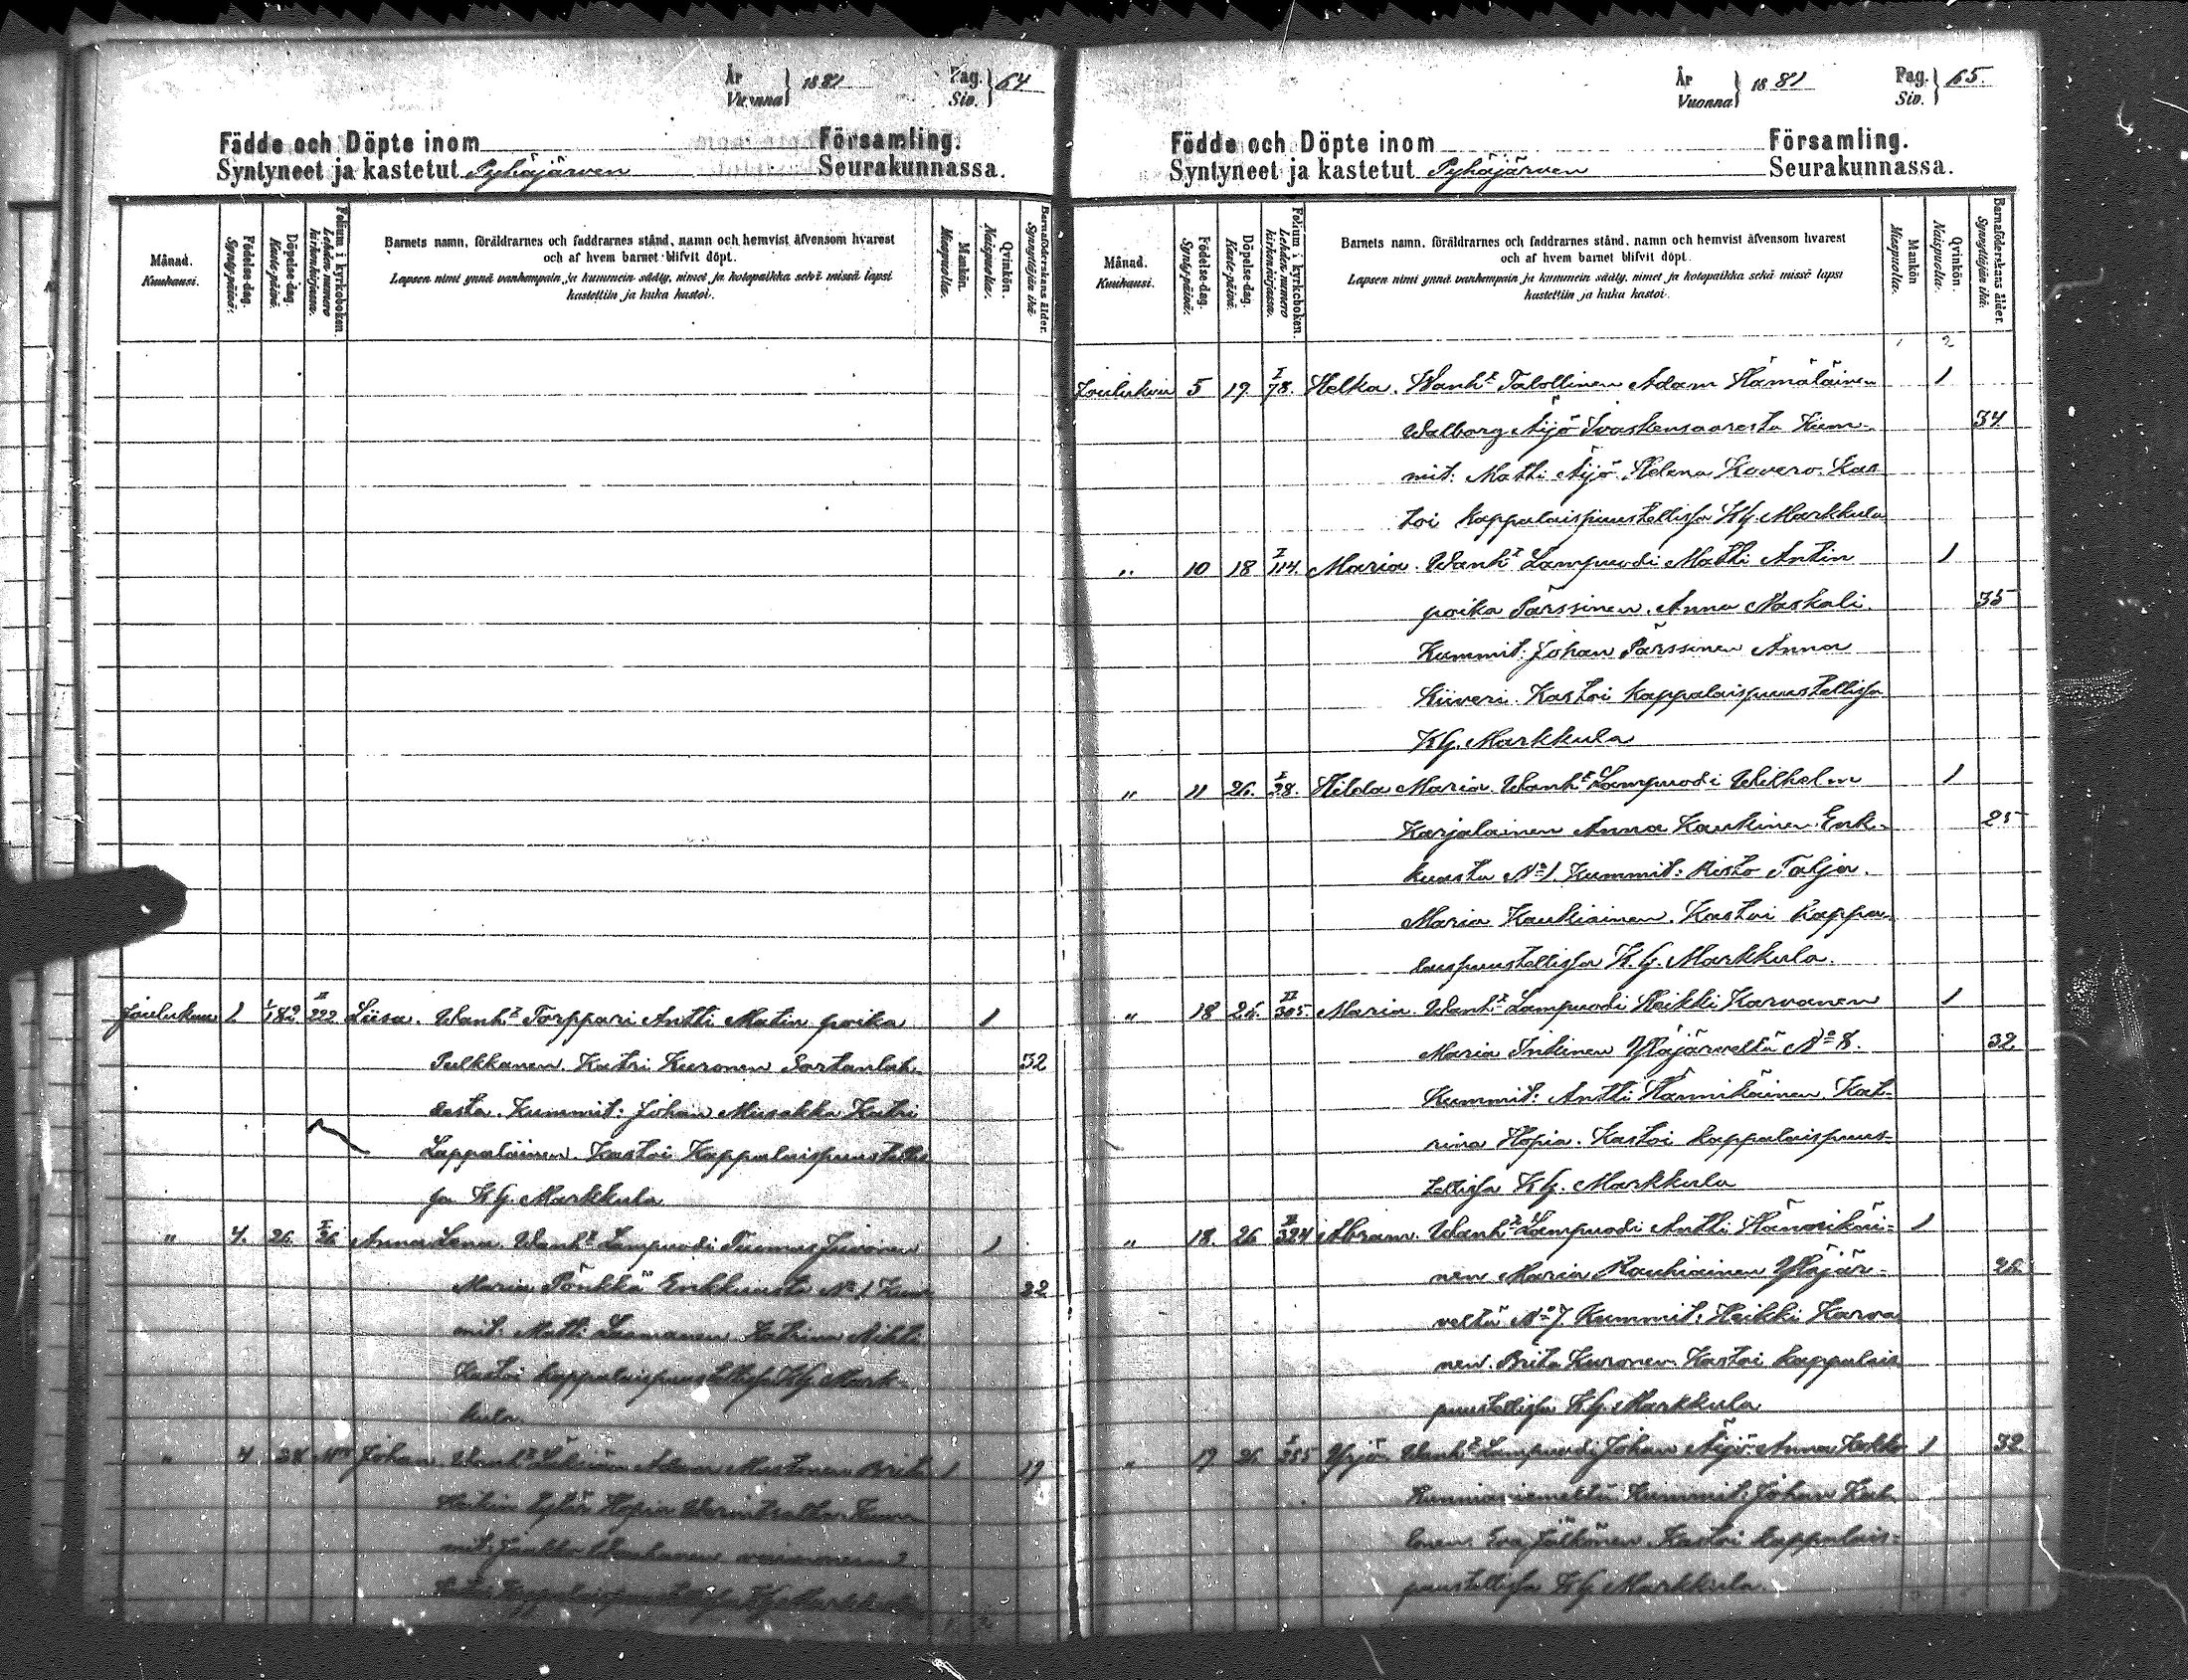 År
Vuonna 1881 Pag. Siv. 64
Fädde och Döpte inom Församling.
Syntyneet ja kastetut Pyhäjärven Seurakunnassa.
Månad. Kuukausi.
Födelse-dag. Synty-päivä.
Döpelse-dag. Kaste-päivä.
Folium i kyrkoboken. Lehden numero kirkonkirjassa.
Barnets namn, föräldrarnes och faddrarnes stånd, namn och hemvist äfvensom hvarest
och af hvem barnet blifvit döpt.
Lapsen nimi ynnä vanhempain ja kummein sääty, nimet ja kotopaikka sekä missä lapsi
kastettiin ja kuka kastoi.
Mankön. Miespuolia.
Qvinkön. Naispuolia.
Barnaföderskans ålder. Synnyttäjän ikä.
Joulukuu 1. II 222 Liisa. Wanht Torppari Antti Matin poika 1
Pulkkanen. Katri Kuronen Sortanlah- 32
desta. Kummit: Johan Musakka Katri
Lappalainen. Kastoi Kappalaispuustelli
sa KG. Markkula
" 4. 26. I 26 Anna Lena. Wanht Lampuodi Tuomas Juvonen 1
Maria Pönkkä Enkkuasta No 1 Kum 22
mit: Matti Katrina
Kastoi kappalaispuustellissa KG Mark-
kula.
" 4 28 Johan Wanht Adam Mustonen Brita 1 19
Heikin tytär Hopia Kum
mit: Jaakko
Kastoi Kappalaispuustellissa KG Markkula
År
Vuonna 1881 Pag. Siv. 65.
Födde och Döpte inom Församling.
Syntyneet ja kastetut Pyhäjärven Seurakunnassa.
Månad. Kuukausi.
Födelse-dag. Synty-päivä.
Döpelse-dag. Kaste-päivä.
Folium i kyrkoboken. Lehden numero kirkonkirjassa.
Barnets namn, föräldrarnes och faddrarnes stånd, namn och hemvist äfvensom hvarest
och af hvem barnet blifvit döpt.
Lapsen nimi ynnä vanhempain ja kummein sääty, nimet ja kotopaikka sekä missä lapsi
kastettiin ja kuka kastoi.
Mankön Miespuolia.
Qvinkön. Naispuolia.
Barnaföderskans ålder. Synnyttäjän ikä.
Joulukuu 5 17. I 78. Helka. Wanht Talollinen Adam Hämäläinen 1
Walborg Äijö Ivaskensaaresta Kum- 34
mit: Matti Äijö. Helena Kovero. Kas
toi kappalaispuustellissa KG. Markkula
" 10 18 I 114. Maria. Wanht Lampuodi Matti Antin 1
poika Pärssinen. Anna Naskali. 35
Kummit: Johan Pärssinen Anna
Kiiveri. Kastoi kappalaispuustellissa
KG. Markkula
" 11 26. I 38. Hilda Maria. Wanht Lampuodi Wilhelm 1
Karjalainen Anna Kaukinen Enk- 25
kuasta No 1. Kummit: Risto Talja.
Maria Kaukiainen. Kastoi kappa-
laispuustellissa K.G. Markkula.
" 18 26. II 305 Maria. Wanht Lampuodi Heikki Karvanen 1
Maria Inkinen Yläjärveltä No 8. 32
Kummit: Antti Hännikäinen. Kat-
rina Hopia. Kastoi kappalaispuus-
tellissa KG. Markkula
" 18. 26 II 324 Abram. Wanht Lampuodi Antti Hännikäi- 1
nen Maria Kaukiainen Yläjär- 26.
veltä No 7. Kummit: Heikki Karva
nen. Brita Kuronen. Kastoi kappalais
puustellissa K.G. Markkula
" 17 26. I 255 Yrjö. Wanht Lampuodi Johan Äijö Anna Kekko 1 32
Kunnianiemeltä Kummit: Johan Kuk
konen. Eva Jälkönen. Kastoi kappalais-
puustellissa KG Markkula.